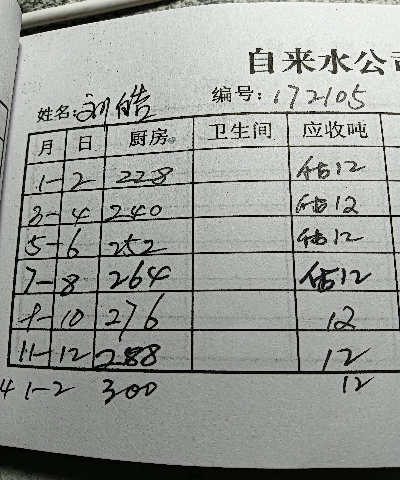 自来水公司
姓名: 刘皓 编号: 172105
月 日 厨房 卫生间 应收吨
1-2 228 估12
3-4 240 估12
5-6 252 估12
7-8 264 估12
9-10 276 12
11-12 288 12
4 1-2 300 12